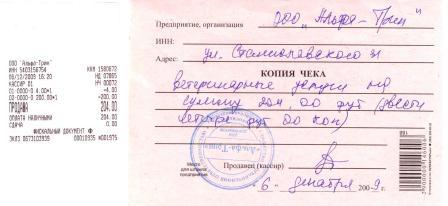 ООО "Альфа-Трин"
ККМ 1580672
ИНН 5403156754
06/12/2009 16:20
КАССИР 01
НЧ 00072
01-0000-0 4.00*1 =4.00
02-0000-0 200.00*1 =200.00
ПРОДАЖА 204.00
ОПЛАТА НАЛИЧНЫМИ 204.00
СДАЧА 0.00
ФИСКАЛЬНЫЙ ДОКУМЕНТ Ф
ЭКЛЗ 0673103939 00010935 #001975
Предприятие, организация ООО "Альфа-Трин"
ИНН:
Адрес: ул. Станиславского 31
КОПИЯ ЧЕКА
Ветеринарные услуги на
сумму 204,00 руб (двести
четыре руб 00 коп)
Продавец (кассир)
Место для штампа предприятия
"Альфа-Трин"
"6" декабря 2009 г.